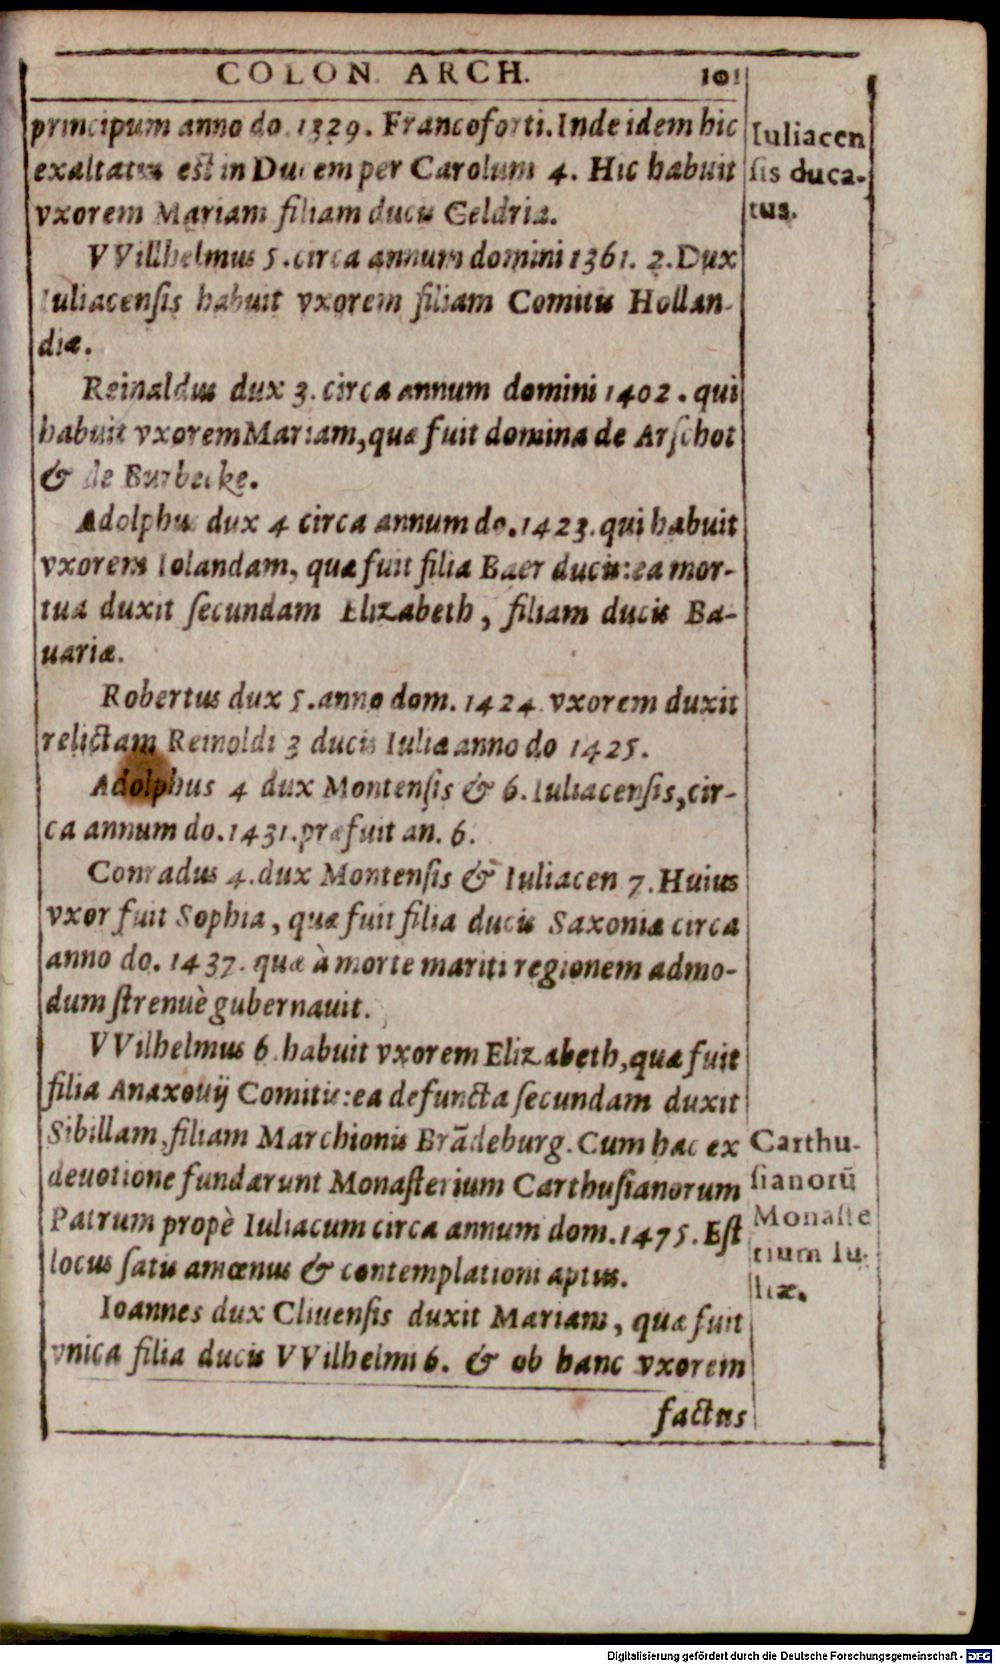 COLON. ARCH. 101
principum anno do. 1329. Francoforti. Inde idem hic
exaltatus est in Ducem per Carolum 4. Hic habuit
vxorem Mariam filiam ducis Geldriæ.
VVillhelmus 5. circa annum domini 1361. 2. Dux
Iuliacensis habuit vxorem filiam Comitis Hollan-
diæ.
Reinaldus dux 3. circa annum domini 1402. qui
habuit vxorem Mariam, quæ fuit domina de Arschot
& de Burbecke.
Adolphus dux 4 circa annum do. 1423. qui habuit
vxorem Iolandam, quæ fuit filia Baer ducis: ea mor-
tua duxit secundam Elizabeth, filiam ducis Ba-
uariæ.
Robertus dux 5. anno dom. 1424. vxorem duxit
relictam Reinoldi 3 ducis Iuliæ anno do 1425.
Adolphus 4 dux Montensis & 6. Iuliacensis, cir-
ca annum do. 1431. præfuit an. 6.
Conradus 4. dux Montensis & Iuliacen 7. Huius
vxor fuit Sophia, quæ fuit filia ducis Saxoniæ circa
anno do. 1437. quæ à morte mariti regionem admo-
dum strenuè gubernauit.
VVilhelmus 6. habuit vxorem Elizabeth, quæ fuit
filia Anaxouij Comitis: ea defuncta secundam duxit
Sibillam, filiam Marchionis Brādeburg. Cum hac ex
deuotione fundarunt Monasterium Carthusianorum
Patrum propè Iuliacum circa annum dom. 1475. Est
locus satis amœnus & contemplationi aptus.
Ioannes dux Cliuensis duxit Mariam, quæ fuit
vnica filia ducis VVilhelmi 6. & ob hanc vxorem
factus
Iuliacen
sis duca-
tus.
Carthu-
sianorū
Monaste
rium Iu-
liæ.
Digitalisierung gefördert durch die Deutsche Forschungsgemeinschaft - DFG